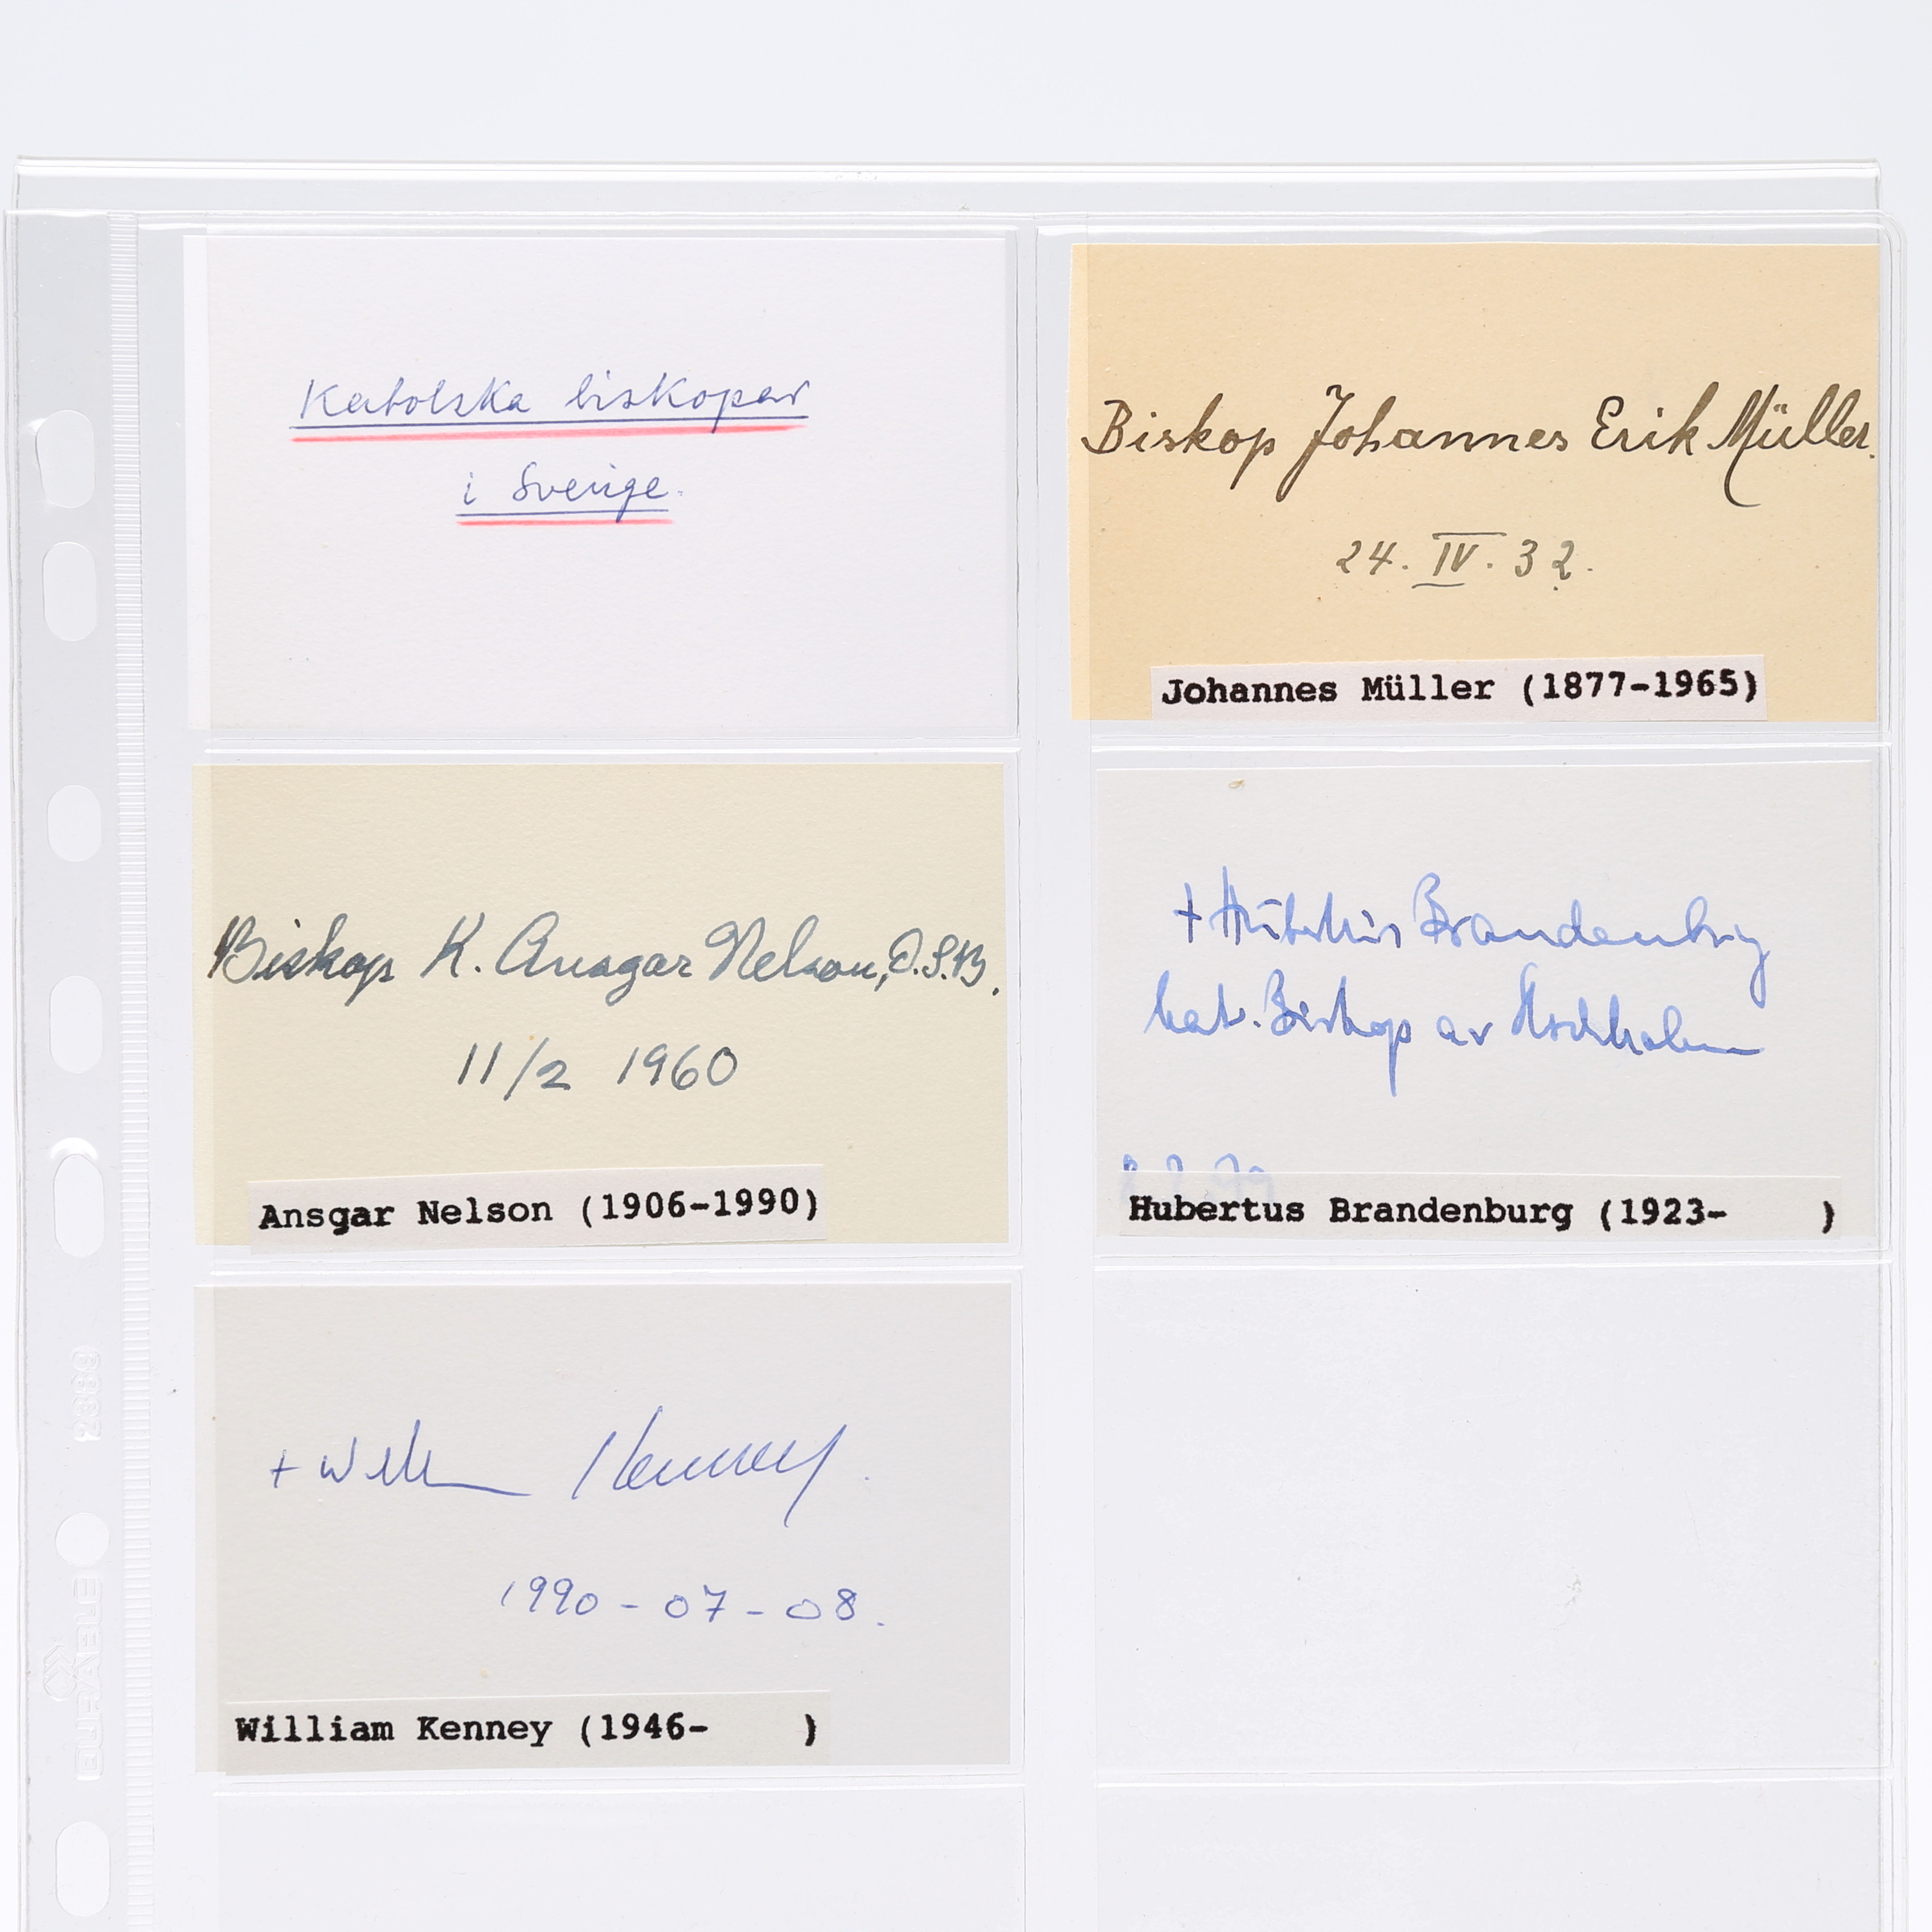 Katolska biskopar
i Sverige.
Biskop Johannes Erik Müller.
24. IV. 32.
Johannes Müller (1877-1965)
Biskop K. Ansgar Nelson, O.S.B.
11/2 1960
Ansgar Nelson (1906-1990)
+ Hubertus Brandenburg
kat. Biskop av Stockholm
Hubertus Brandenburg (1923- )
+ William Kenney.
1990-07-08.
William Kenney (1946- )
2388
DURABLE